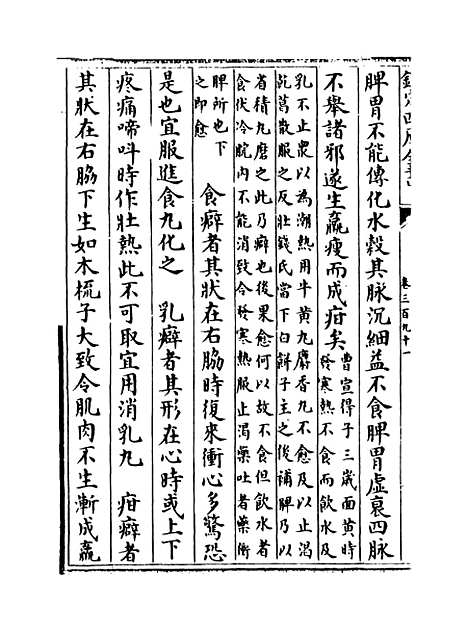 欽定四庫全書
卷三百九十一
脾胃不能傳化水穀其脉沉細益不食脾胃虛衰四脉
不舉諸邪遂生羸瘦而成疳矣
曹宣得子三歲面黄時
發寒熱不食而飲水及
乳不止衆以為潮熱用牛黄丸麝香丸不愈及以止渴
乾葛散服之反吐錢氏當下白餅子主之後補脾乃以
消積丸磨之此乃癖也後果愈何以故不食但飲水者
食伏冷脘内不能消致令發寒熱服止渴藥吐者藥衝
脾所也下
之即愈
食癖者其狀在右脇時復來衝心多驚恐
是也宜服進食丸化之 乳癖者其形在心時或上下
疼痛啼呌時作壯熱此不可取宜用消乳丸 疳癖者
其狀在右脇下生如木梳子大致令肌肉不生漸成羸